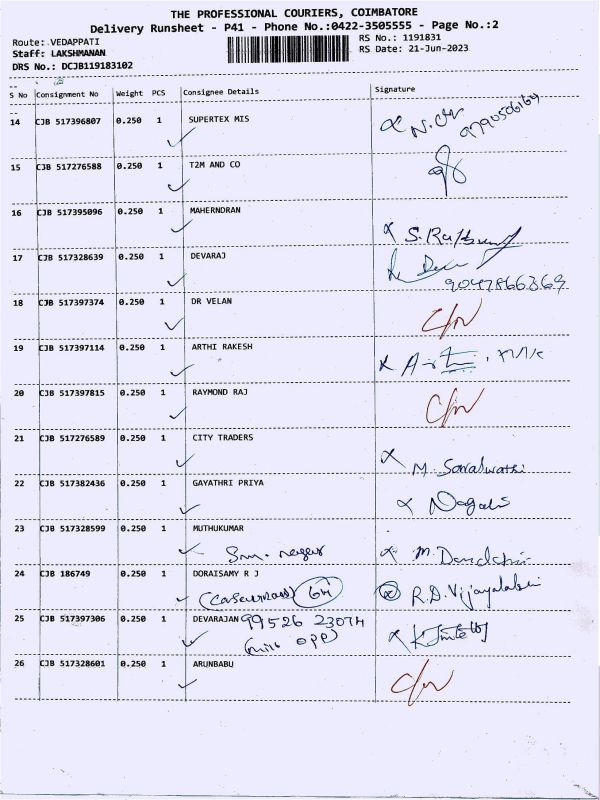 THE PROFESSIONAL COURIERS, COIMBATORE
Delivery Runsheet - P41 - Phone No.:0422-3505555 - Page No.:2
Route: VEDAPPATI
RS No.: 1191831
Staff: LAKSHMANAN
RS Date: 21-Jun-2023
DRS No.: DCJB119183102
S No Consignment No Weight PCS Consignee Details Signature
14 CJB 517396807 0.250 1 SUPERTEX MIS
15 CJB 517276588 0.250 1 T2M AND CO
16 CJB 517395096 0.250 1 MAHERNDRAN
17 CJB 517328639 0.250 1 DEVARAJ
18 CJB 517397374 0.250 1 DR VELAN
19 CJB 517397114 0.250 1 ARTHI RAKESH
20 CJB 517397815 0.250 1 RAYMOND RAJ
21 CJB 517276589 0.250 1 CITY TRADERS
M. Saralwathi
22 CJB 517382436 0.250 1 GAYATHRI PRIYA
23 CJB 517328599 0.250 1 MUTHUKUMAR
24 CJB 186749 0.250 1 DORAISAMY R J
R.D. Vijayalakshmi
25 CJB 517397306 0.250 1 DEVARAJAN 99526 23074
OPP)
26 CJB 517328601 0.250 1 ARUNBABU